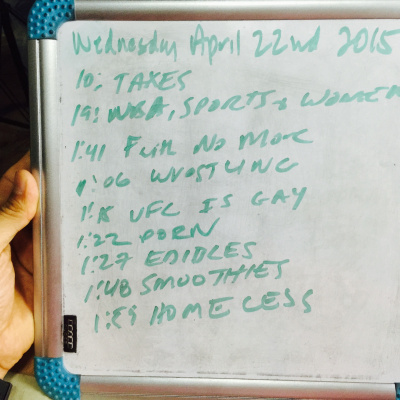 Wednesday April 22nd 2015
10: TAXES
19: WNBA, SPORTS & WOMEN
1:41 FUK NO MOR
1:06 WROSTLING
1:15 UFC IS GAY
1:22 PORN
1:27 EDIBLES
1:48 SMOOTHIES
1:59 HOMELESS